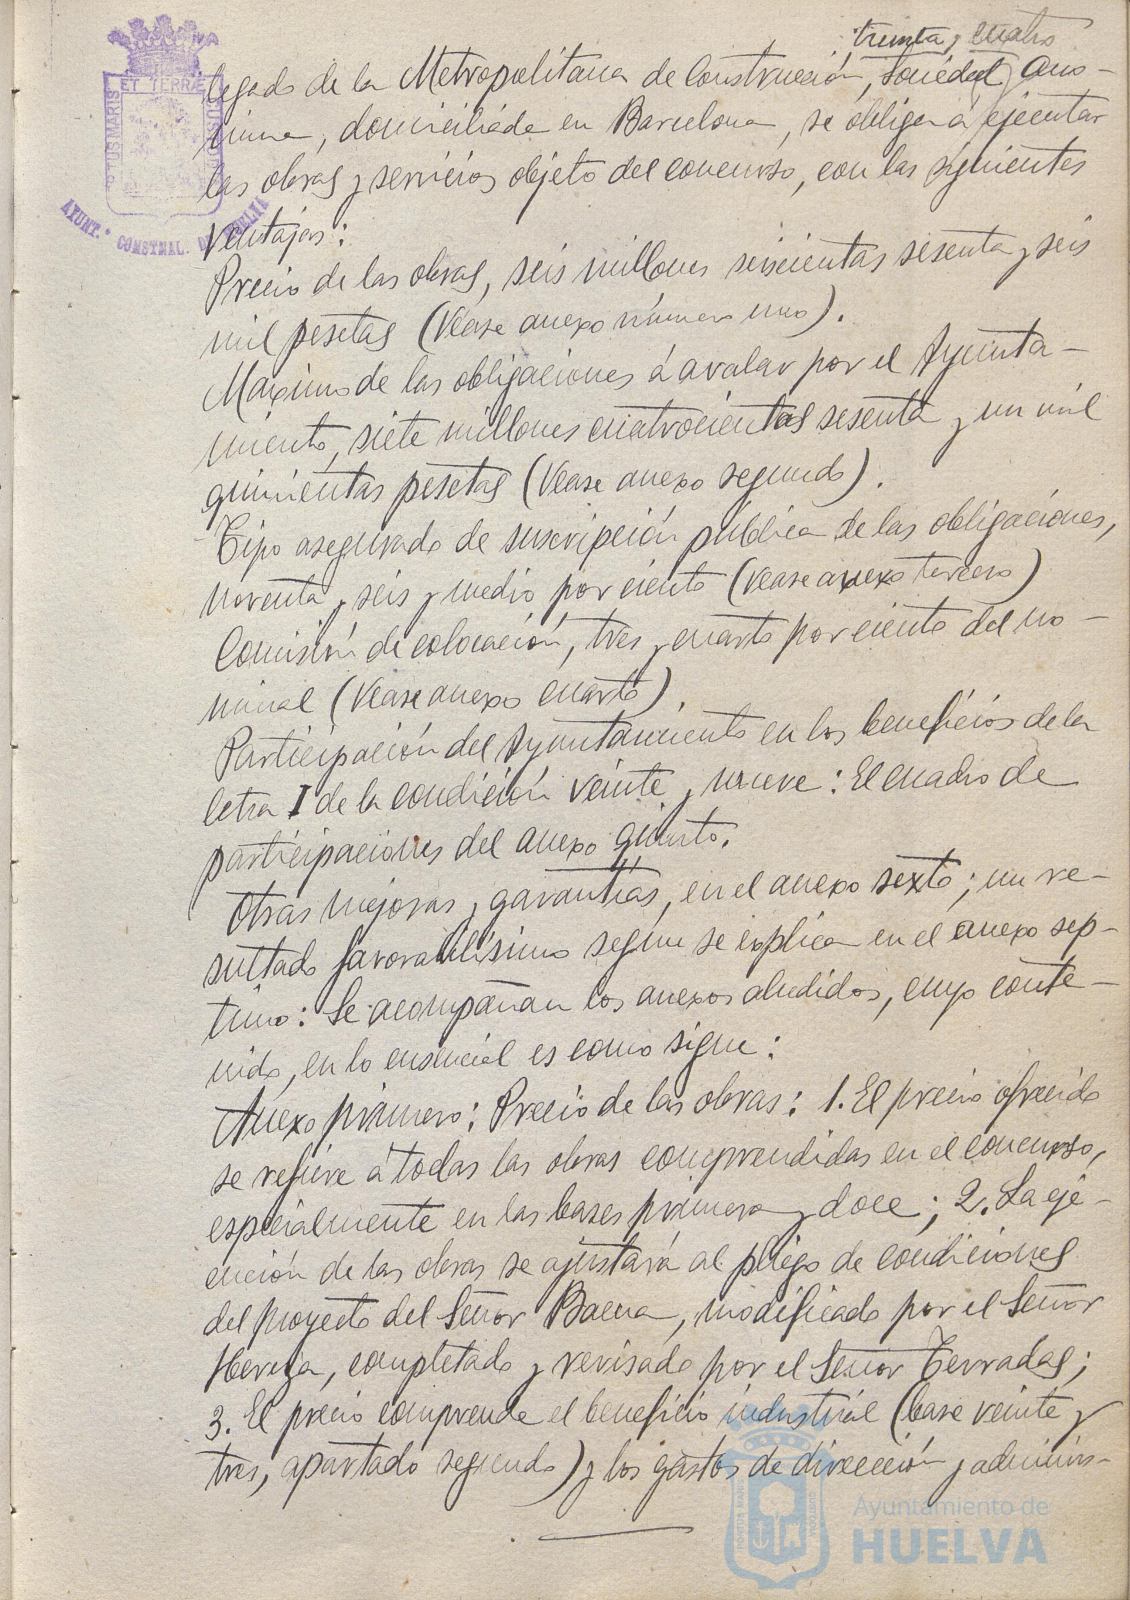 treinta y cuatro
legado de la Metropolitana de Construcción, Sociedad Anó-
nima, domiciliada en Barcelona, se obliga á ejecutar
las obras y servicios objeto del concurso, con las siguientes
ventajas:
Precio de las obras, seis millones seiscientas sesenta y seis
mil pesetas (Véase anexo número uno).
Maximo de las obligaciones á avalar por el Ayunta-
miento, siete millones cuatrocientas sesenta y un mil
quinientas pesetas (Véase anexo segundo).
Tipo asegurado de suscripción pública de las obligaciones,
noventa y seis y medio por ciento (Vease anexo tercero)
Comisión de colocación, tres y cuarto por ciento del no-
minal (Vease anexo cuarto).
Participación del Ayuntamiento en los beneficios de la
letra I de la condición veinte y nueve: El cuadro de
participaciones del anexo quinto.
Otras mejoras y garantías, en el anexo sexto; un re-
sultado favorabilísimo segun se explica en el anexo sep-
timo: Se acompañan los anexos aludidos, cuyo conte-
nido, en lo esencial es como sigue:
Anexo primero: Precio de las obras: 1. El precio ofrecido
se refiere á todas las obras comprendidas en el concurso,
especialmente en las bases primera y doce; 2. La eje-
cución de las obras se ajustará al pliego de condiciones
del proyecto del Señor Baena, modificado por el Señor
Hereza, completado y revisado por el Señor Terradas;
3. El precio comprende el beneficio industrial (base veinte y
tres, apartado segundo) y los gastos de dirección y adminis-
ET TERRÆ
PORTUS MARIS
CUSTODIA
AYUNT.º CONSTNAL. DE HUELVA
Ayuntamiento de
HUELVA